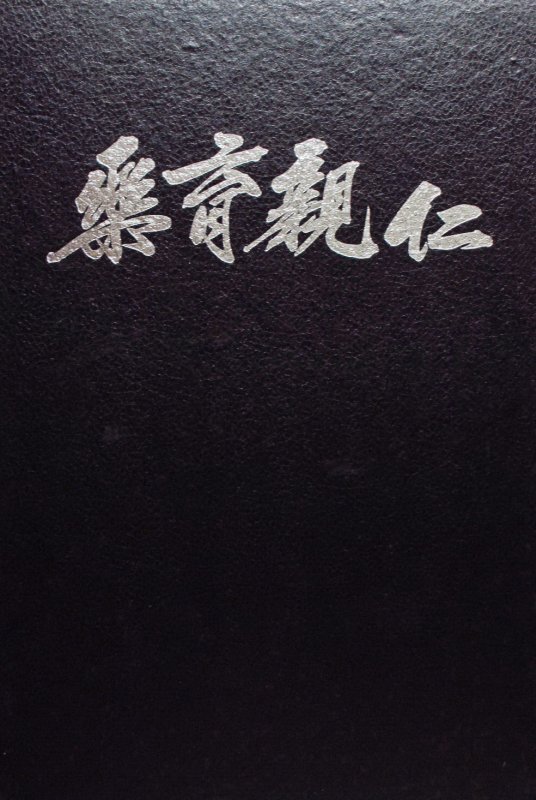 樂育親仁